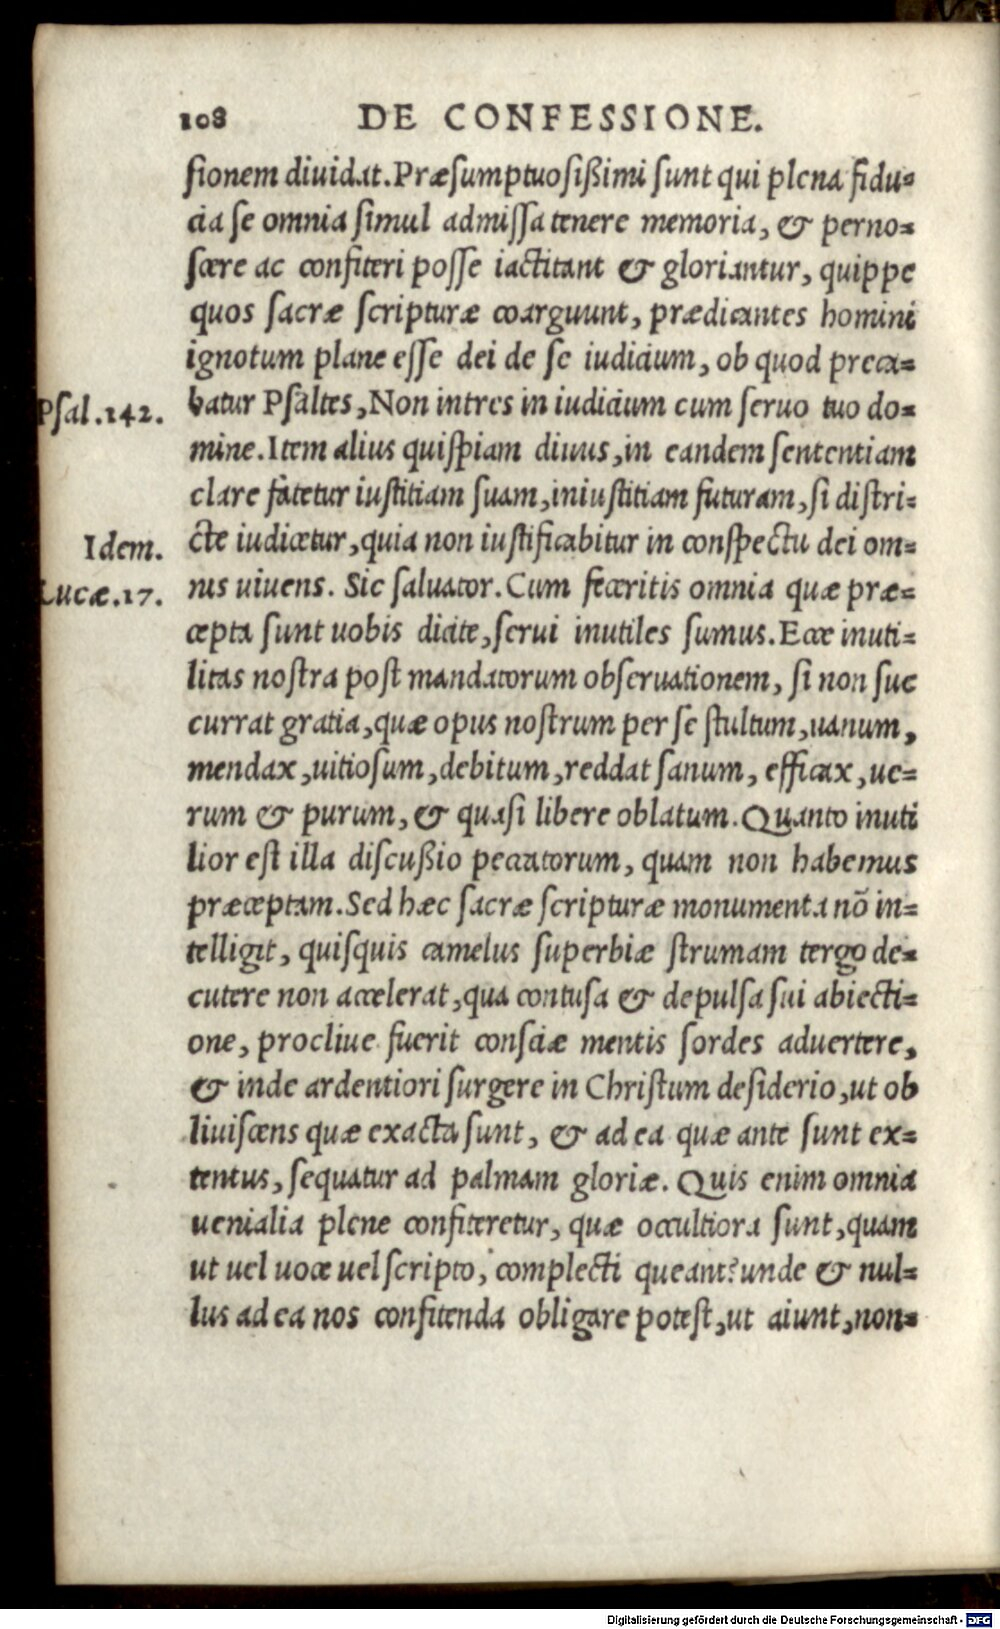 108 DE CONFESSIONE.
sionem diuidat. Præsumptuosißimi sunt qui plena fidu-
cia se omnia simul admissa tenere memoria, & perno-
scere ac confiteri posse iactitant & gloriantur, quippe
quos sacræ scripturæ coarguunt, prædicantes homini
ignotum plane esse dei de se iudicium, ob quod preca-
Psal.142. batur Psaltes, Non intres in iudicium cum seruo tuo do-
mine. Item alius quispiam diuus, in eandem sententiam
clare fatetur iustitiam suam, iniustitiam futuram, si distri-
Idem. cte iudicetur, quia non iustificabitur in conspectu dei om-
Lucæ.17. nis uiuens. Sic saluator. Cum feceritis omnia quæ præ-
cepta sunt uobis dicite, serui inutiles sumus. Ecce inuti-
litas nostra post mandatorum obseruationem, si non suc
currat gratia, quæ opus nostrum per se stultum, uanum,
mendax, uitiosum, debitum, reddat sanum, efficax, ue-
rum & purum, & quasi libere oblatum. Quanto inuti
lior est illa discußio peccatorum, quam non habemus
præceptam. Sed hæc sacræ scripturæ monumenta nõ in-
telligit, quisquis camelus superbiæ strumam tergo de-
cutere non accelerat, qua contusa & depulsa sui abiecti-
one, procliue fuerit consciæ mentis sordes aduertere,
& inde ardentiori surgere in Christum desiderio, ut ob
liuiscens quæ exacta sunt, & ad ea quæ ante sunt ex-
tentus, sequatur ad palmam gloriæ. Quis enim omnia
uenialia plene confiteretur, quæ occultiora sunt, quam
ut uel uoce uel scripto, complecti queant? unde & nul-
lus ad ea nos confitenda obligare potest, ut aiunt, non-
Digitalisierung gefördert durch die Deutsche Forschungsgemeinschaft - DFG